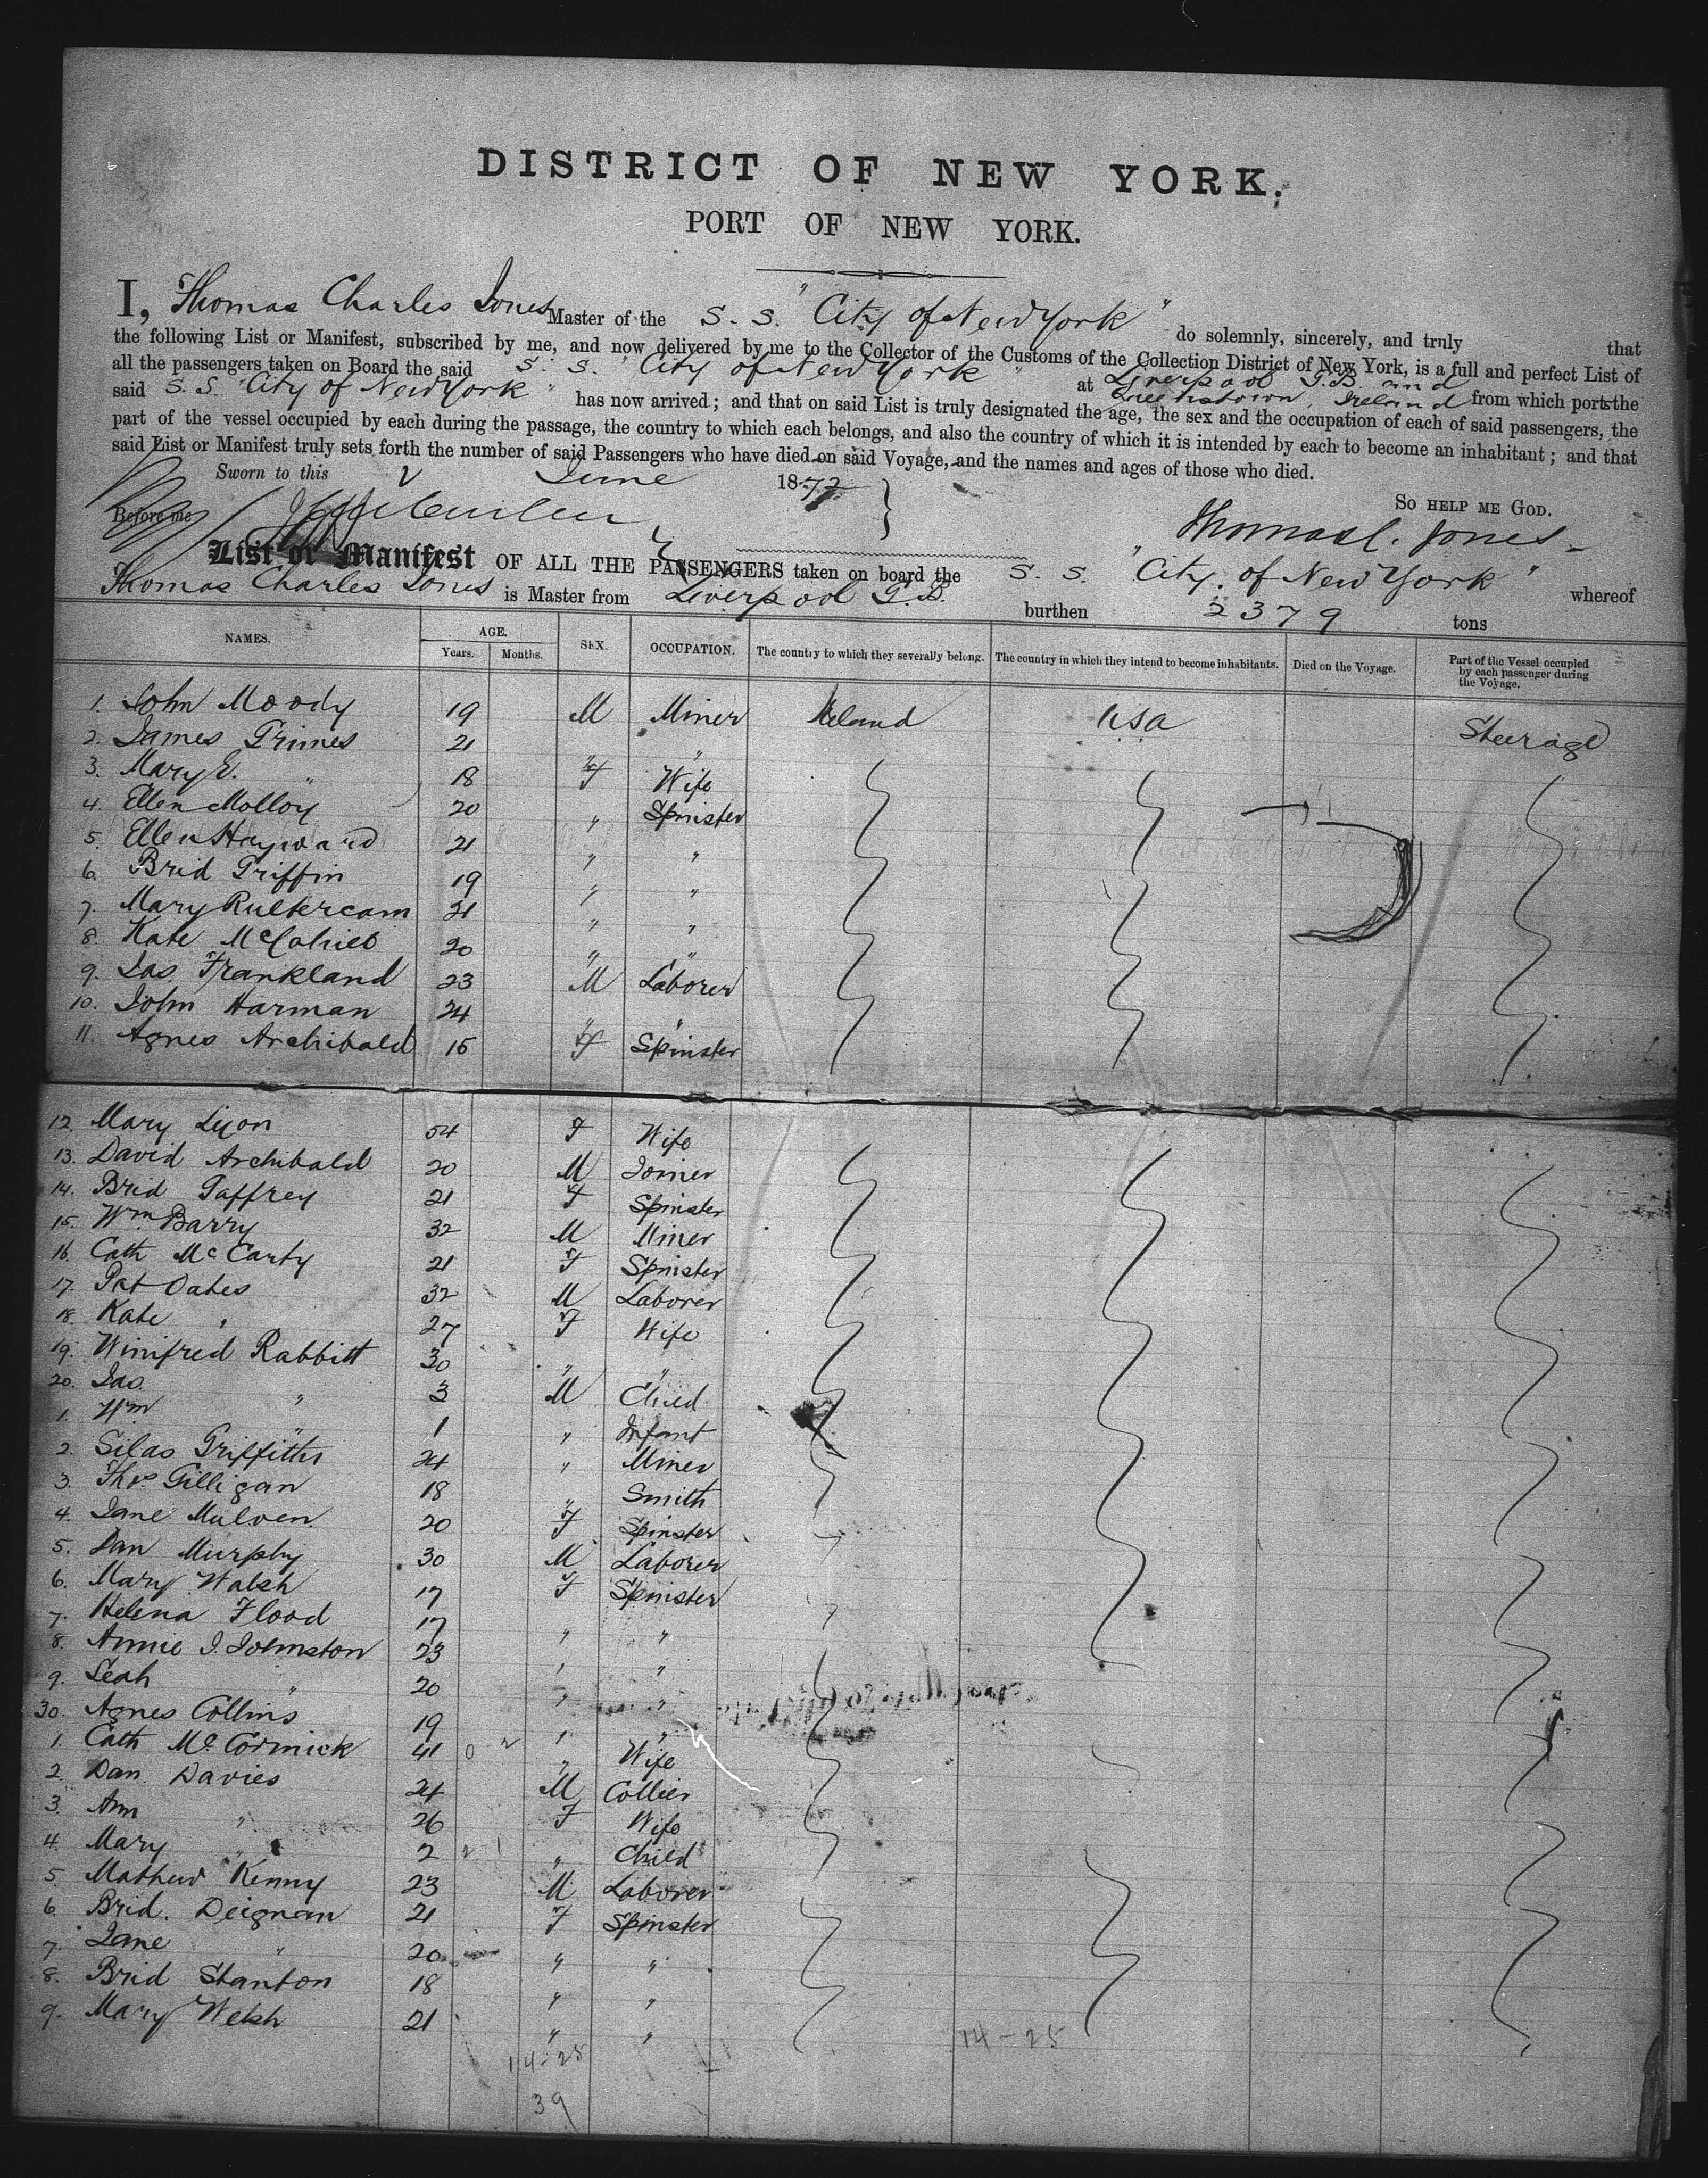 DISTRICT OF NEW YORK.
PORT OF NEW YORK.
I, Thomas Charles Jones Master of the S. S. "City of New York" do solemnly, sincerely, and truly that
the following List or Manifest, subscribed by me, and now delivered by me to the Collector of the Customs of the Collection District of New York, is a full and perfect List of
all the passengers taken on Board the said S. S. "City of New York" at Liverpool G.B. and Queenstown, Ireland from which ports the
said S. S. "City of New York" has now arrived; and that on said List is truly designated the age, the sex and the occupation of each of said passengers, the
part of the vessel occupied by each during the passage, the country to which each belongs, and also the country of which it is intended by each to become an inhabitant; and that
said List or Manifest truly sets forth the number of said Passengers who have died on said Voyage, and the names and ages of those who died.
Sworn to this June 1872
So HELP ME GOD.
Before me
Thomas C. Jones
List or Manifest OF ALL THE PASSENGERS taken on board the S. S. "City of New York" whereof
Thomas Charles Jones is Master from Liverpool G.B. burthen 2379 tons
NAMES. AGE. Years. Months. SEX. OCCUPATION. The country to which they severally belong. The country in which they intend to become inhabitants. Died on the Voyage. Part of the Vessel occupied by each passenger during the Voyage.
1. John Moody 19 M Miner Ireland USA Steerage
2. James Grimes 21 " "
3. Mary E. " 18 F Wife
4. Ellen Molloy 20 " Spinster
5. Ellen Hayward 21 " "
6. Brid Griffin 19 " "
7. Mary 21 " "
8. Kate 20 " "
9. Jas Frankland 23 M Laborer
10. John Harman 24 " "
11. Agnes Archibald 15 F Spinster
12. Mary Lyon 54 F Wife
13. David Archibald 20 M Joiner
14. Brid Gaffrey 21 F Spinster
15. Wm Barry 32 M Miner
16. Cath McCarty 21 F Spinster
17. Pat Oates 32 M Laborer
18. Kate " 27 F Wife
19. Winifred Rabbitt 30 " "
20. Jas. " 3 M Child
1. Wm " 1 " Infant
2. Silas Griffiths 24 " Miner
3. Thos Gilligan 18 " Smith
4. Jane Mulven 20 F Spinster
5. Dan Murphy 30 M Laborer
6. Mary Walsh 17 F Spinster
7. Helena Flood 17 " "
8. Annie J. Johnston 23 " "
9. Leah " 20 " "
30. Agnes Collins 19 " "
1. Cath McCormick 41 " Wife
2. Dan. Davies 24 M Collier
3. Ann " 26 F Wife
4. Mary " 2 " Child
5. Mathew Kenny 23 M Laborer
6. Brid. Deignan 21 F Spinster
7. Jane " 20 " "
8. Brid Stanton 18 " "
9. Mary Welsh 21 " "
14-25 14-25
39